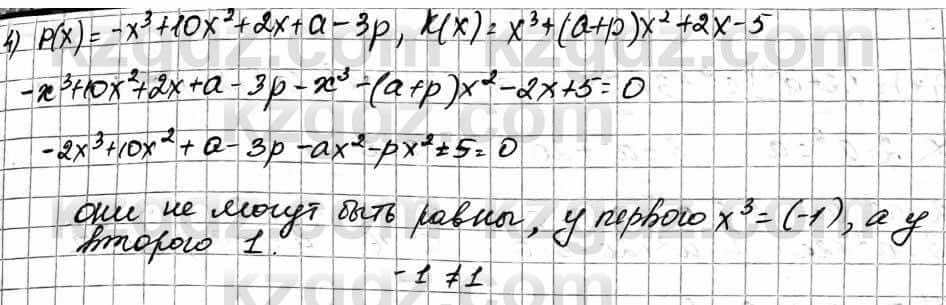 4) P(x) = -x³+10x²+2x+a-3p, K(x) = x³+(a+p)x²+2x-5
-x³+10x²+2x+a-3p-x³-(a+p)x²-2x+5=0
-2x³+10x²+a-3p-ax²-px²+5=0
они не могут быть равны, у первого x³=(-1), а у
второго 1.
-1≠1